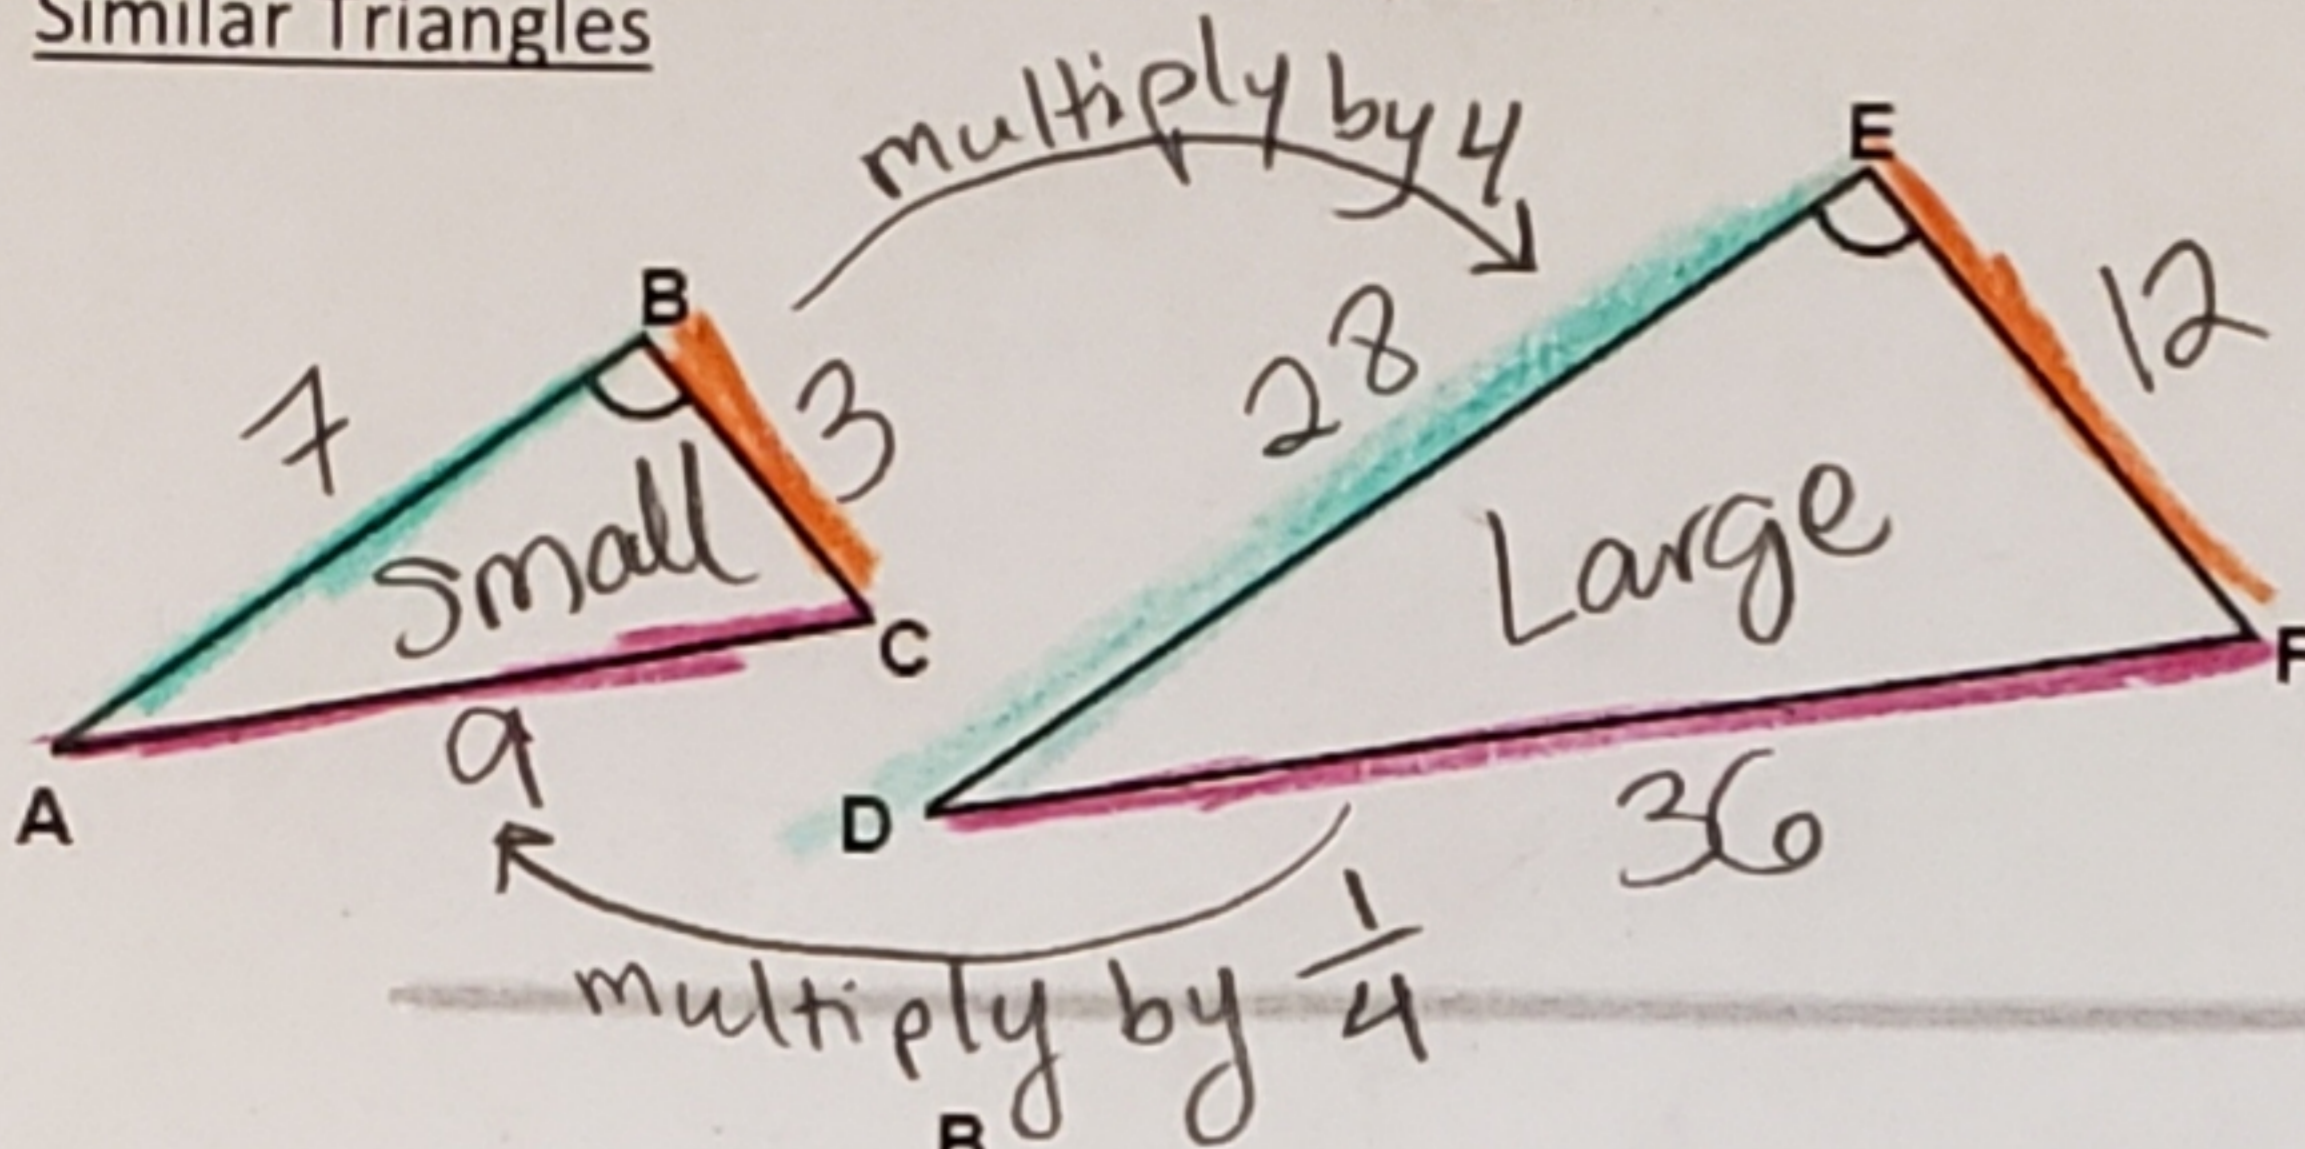 Similar Triangles
multiply by 4
E
B
12
7
3
28
Small
Large
C
F
9
A
D
36
multiply by 1/4
B